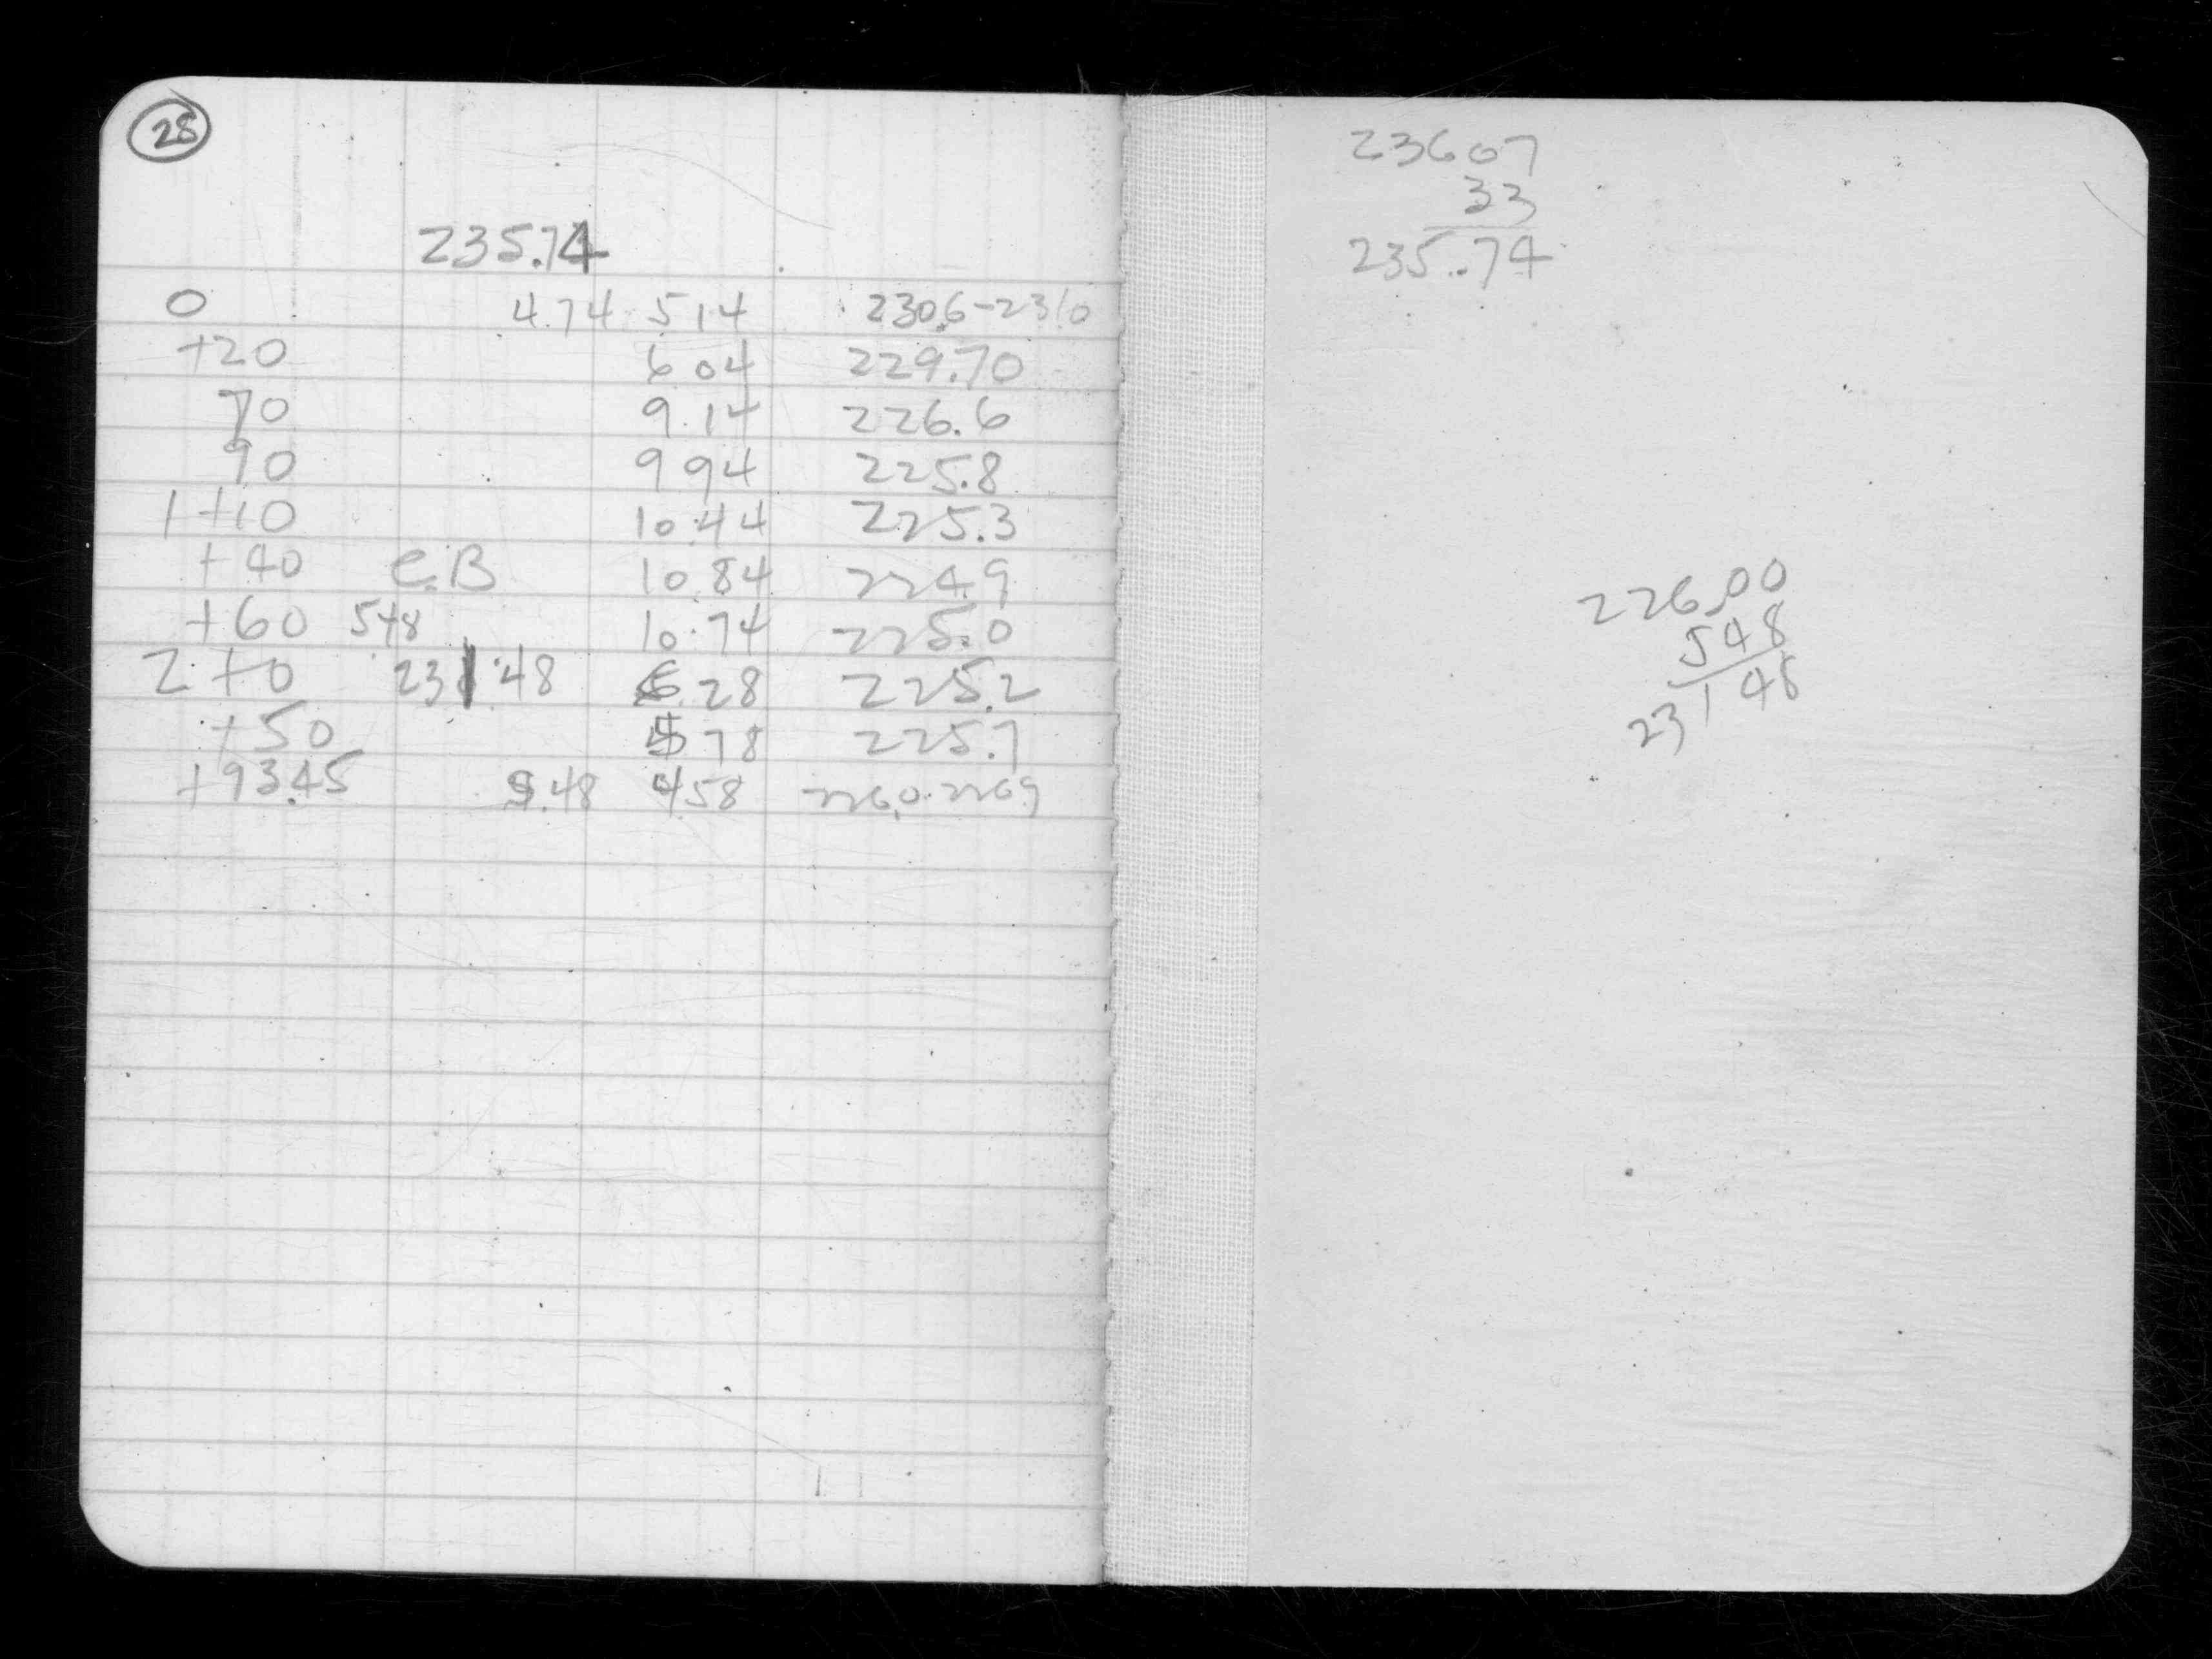 28
235.74
0 4.74 514 230.6-2310
+20 6 04 229.70
70 9.14 226.6
90 9 94 225.8
1+10 10.44 225.3
+40 C.B 10.84 224.9
+60 548 10.74 225.0
2+0 231.48 6.28 225.2
+50 5 78 225.7
+93.45 5.48 458 226.0-2269
23607
33
235.74
226.00
548
231 48